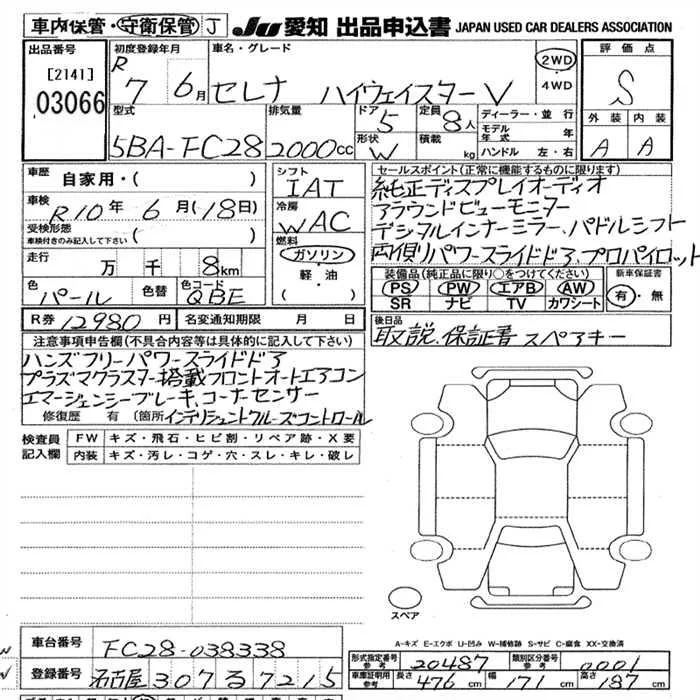 車内保管・守衛保管 J JU 愛知 出品申込書 JAPAN USED CAR DEALERS ASSOCIATION
出品番号 初度登録年月 車名・グレード 評価点
[2141] R 7 6月 セレナ ハイウェイスターV 2WD・4WD S
03066
型式 排気量 ドア 5 定員 8人 ディーラー・並行 外装 内装
5BA-FC28 2000cc 形状 W 積載 kg モデル年式 年 A A
ハンドル 左・右
車歴 自家用・( ) シフト IAT セールスポイント(正常に機能するものに限ります)
車検 R10年 6月(18日) 冷房 WAC 純正ディスプレイオーディオ
アラウンドビューモニター
受検形態 ( ) 燃料 デジタルインナーミラー、パドルシフト
車検付きのみ記入して下さい ガソリン・軽・油 ( ) 両側パワースライドドア、プロパイロット
走行 万 千 8km 装備品(純正品に限り○をつけてください) 新車保証書
色 パール 色替 色コード QBE PS PW エアB AW 有・無
SR ナビ TV カワシート
R券 12980円 名変通知期限 月 日 後日品
取説、保証書 スペアキー
注意事項申告欄(不具合内容等は具体的に記入して下さい)
ハンズフリーパワースライドドア
プラズマクラスター搭載フロントオートエアコン
エマージェンシーブレーキ、コーナーセンサー
修復歴 有 〔箇所 インテリジェントクルーズコントロール
検査員記入欄 FW キズ・飛石・ヒビ割・リペア跡・X要
内装 キズ・汚レ・コゲ・穴・スレ・キレ・破レ
スペア
A-キズ E-エクボ U-凹み W-補修跡 S-サビ C-腐食 XX-交換済
車台番号 FC28-038338 形式指定番号 参考 20487 類別区分番号 参考 0001
登録番号 名古屋 307 る 7215 車庫証明用 参考 長さ 476cm 幅 171cm 高さ 187cm